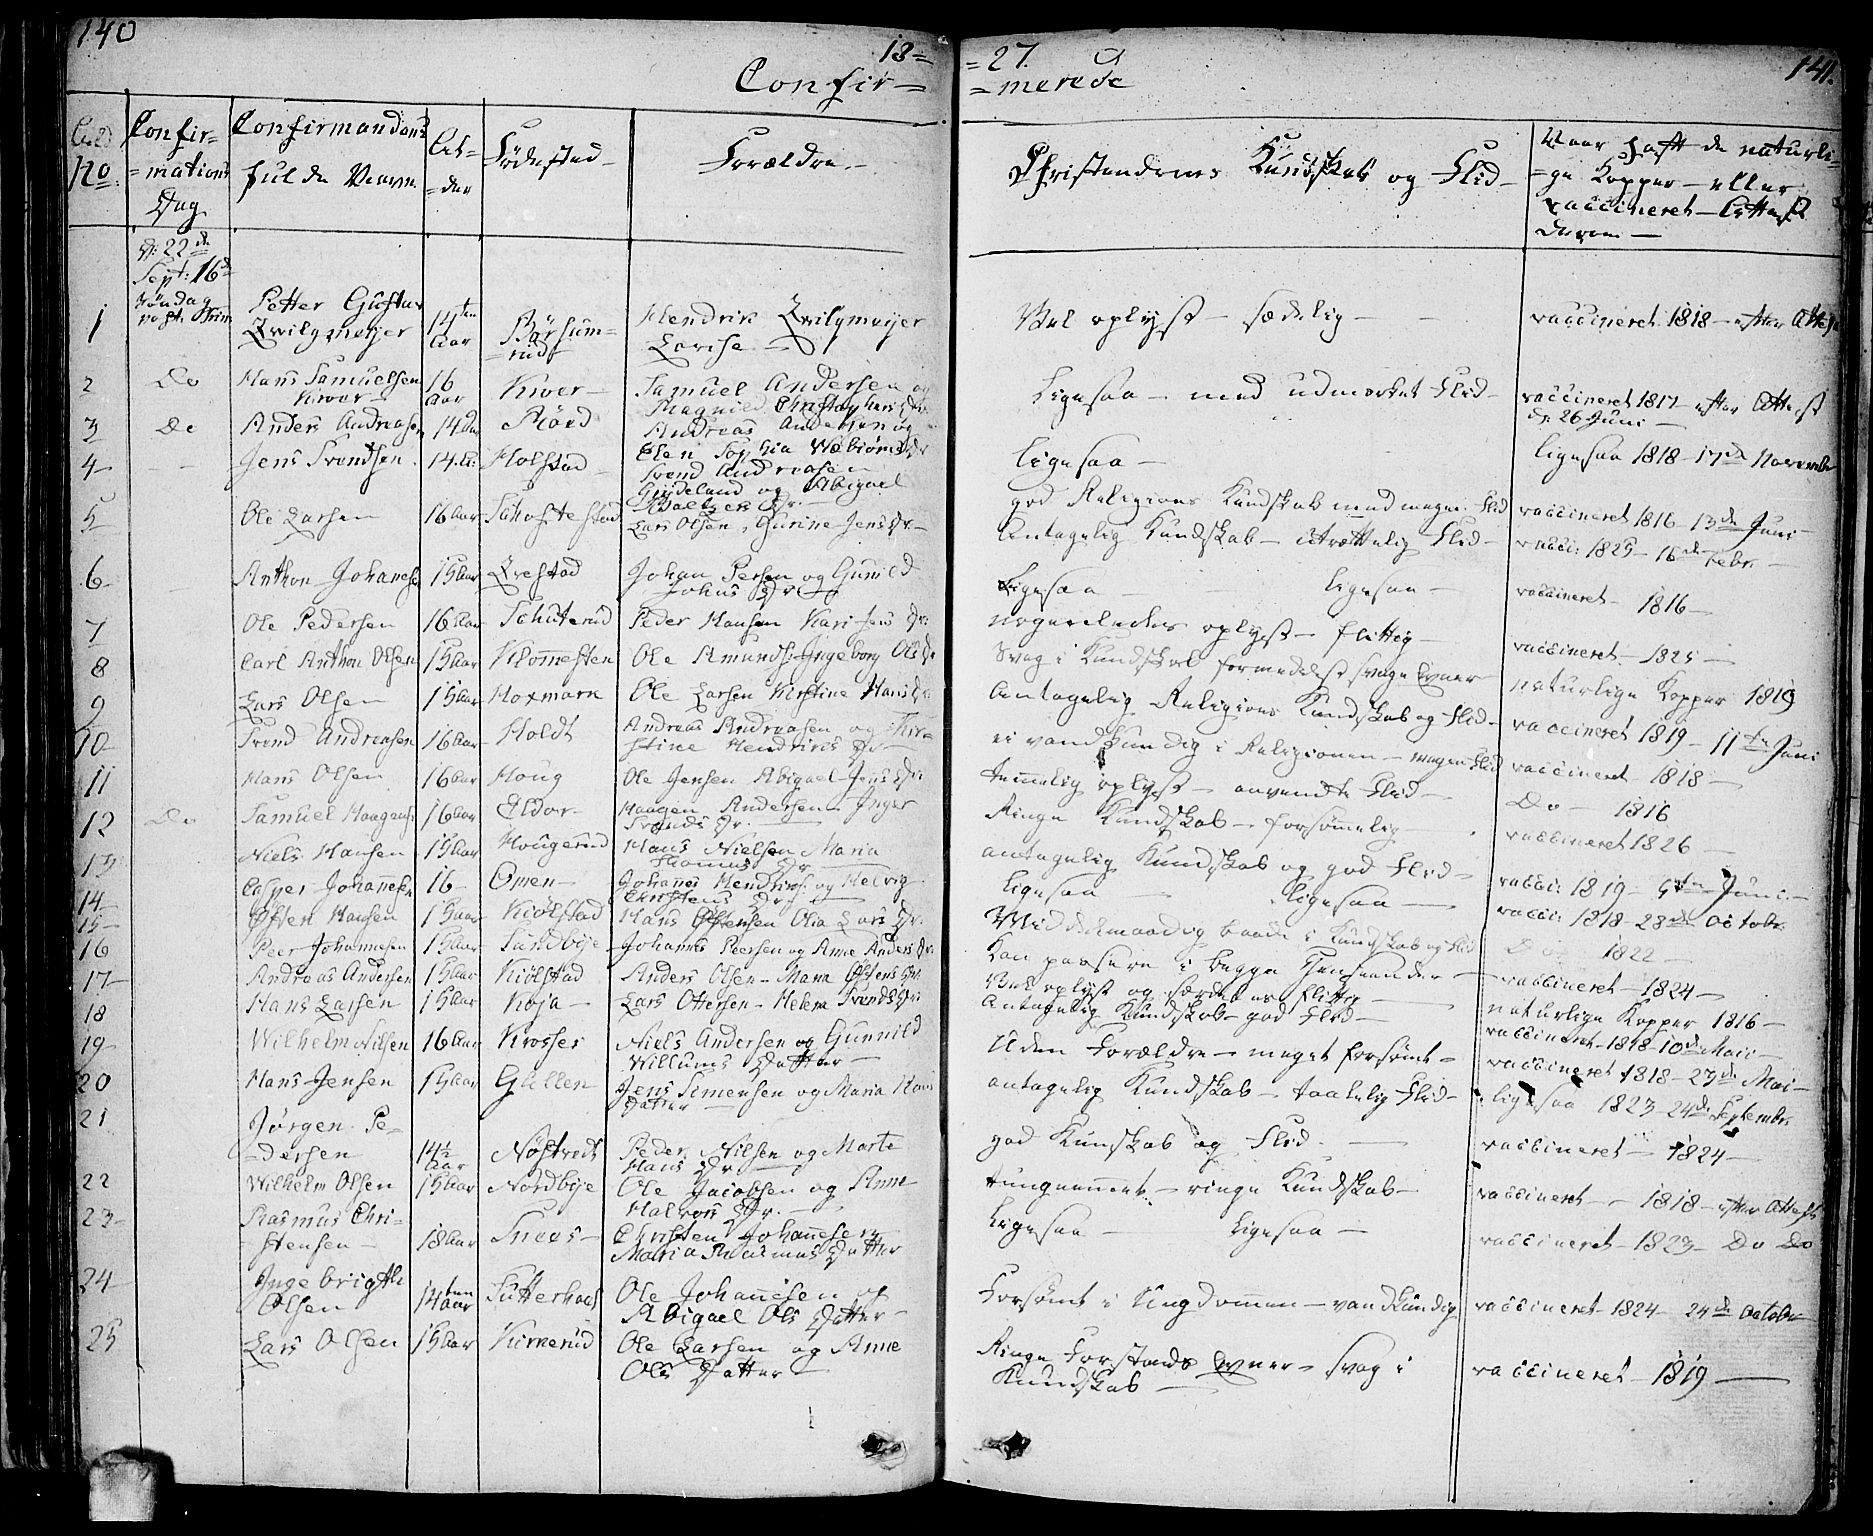 140
18=
=27.
141.
Confir=
=merede
No
Confir=
=mations
Dag
Confirmandens
fulde Navn
Al=
=der
Fødested
Forældre
Christendoms Kundskab og Flid
Naar haft de naturli=
=ge Kopper - eller
vaccineret - Attest
derom -
D: 22de
Sept: 16de
Søndag
post Trin
1 Petter Gustav Zwilgmeyer 14ten Aar Børsum=rud Hendrik Zwilgmeyer Lovise Vel oplyst - sædelig - vaccineret 1818 - efter Attest
2 Do Hans Samuelsen Kiver 16 Aar Kiver - Samuel Andersen og Magnild Christophersdr Ligesaa - med udmerket Flid - vaccineret 1817 - efter Attest d. 26 Juni -
3 Do Anders Andreasen 14 Aar Rörd Andreas Andersen og Elen Sophia Webiørnsdr Ligesaa - Ligesaa 1818 - 17de November
4 Jens Svendsen 14 A: Holstad Svend Andreasen Gudeland og Abigael Baltzersdr. god Religions Kundskab med megen Flid vaccineret 1816 - 13de Juni -
5 Ole Larsen 16 Aar Lars Olsen, Gurine Jensdr - Antagelig Kundskab - utrættelig Flid - vacci: 1825 - 16de Febr. -
6 Anthon Johanesen 15 Aar Johan Persen og Gunild Johnsdr Ligesaa - Ligesaa - vaccineret - 1816 -
7 Ole Pedersen 16 Aar Schuterud Peder Hansen Kari Jensdr: nogenledes oplyst - flittig - vaccineret - 1825 -
8 Carl Anthon Olsen 15 Aar Klomesten Ole Amunds: Ingeborg Olsdr Svag i Kundskab formedelst svage Evner naturlige Kopper 1819
9 Lars Olsen 15 Aar Hoxmark Ole Larsen Kirstine Hansdr Antagelig Religions Kundskab og Flid - vaccineret 1819 - 11te Juni
10 Svend Andreasen 16 Aar Holdt Andreas Andreasen og Kir=stine Hendriksdr ei vandkundig i Religionen - megen Flid vaccineret - 1818 -
11 Hans Olsen 16 Aar Houg Ole Jensen Abigael Jensdr temmelig oplyst - anvendte Flid - Do - 1816
12 Do Samuel Haagens: 16 Aar Eldor - Haagen Andersen - Inger Svendsdr. Ringe Kundskab - forsømmelig - vaccineret 1826 -
13 Niels Hansen 15 Aar Hougerud Hans Nielsen Maria Thomasdr antagelig Kundskab og god Flid - vacci: 1819 - 5te Juni -
14 Casper Johannesen 16 - Omen - Johannes Hendriks: og Helvig Christensdr Ligesaa - Ligesaa - vacci: 1818 - 28de Octobr.
15 Østen Hansen 15 Aar Kiölstad Hans Østensen Olia Larsdr. Middelmaadig baade i Kundskab og Flid Do 1822 -
16 Peer Johannesen 15 Aar Sundbye Johannes Peersen og Anne Andersdr. Kan passere i begge Henseender - vaccineret - 1824 -
17 Andreas Andersen 15 Aar Kiölstad Anders Olsen - Maria Østensdr. Vel oplyst og særdeles flittig - naturlige Kopper 1816 -
18 Hans Larsen 15 Aar Koja - Lars Ottersen - Helene Svendsdr: Antagelig Kundskab - god Flid - vaccineret - 1818 - 10de Maii -
19 Wilhelm Nilsen 16 Aar Krosser Niels Andersen og Gunnild Willums Datter - Uden Forældre - meget forsømt - vaccineret 1818 - 23de Mai -
20 Hans Jensen 15 Aar Glellen Jens Simensen og Maria Hans Datter - antagelig Kundskab - taalelig Flid - Ligesaa 1823 - 24de September
21 Jørgen Pe=dersen 14½ Aar Nøstvedt Peder Nilsen og Marte Hans Dr - god Kunskab og Flid. - vaccineret - 1824 -
22 Wilhelm Olsen 15 Aar Nordbye Ole Jacobsen og Anne Halvors Dr. - tungnemmet - ringe Kundskab - vaccineret - 1818 - efter Attest
23 Rasmus Chri=stensen - 18 Aar Snees - Christen Johannesen Maria Rasmus Datter Ligesaa - Ligesaa - vaccineret - 1823 - Do Do
24 Ingebrigth Olsen 14ten Aar Ole Johannesen og Abigael Ols Datter - Forsømt i Ungdommen - vandkundig vaccineret - 1824 - 24de October
25 Lars Olsen 15 Aar Kirkerud Ole Larsen og Anne Ols Datter Ringe Forstands Evner - svag i Kundskab - vaccineret - 1819 -